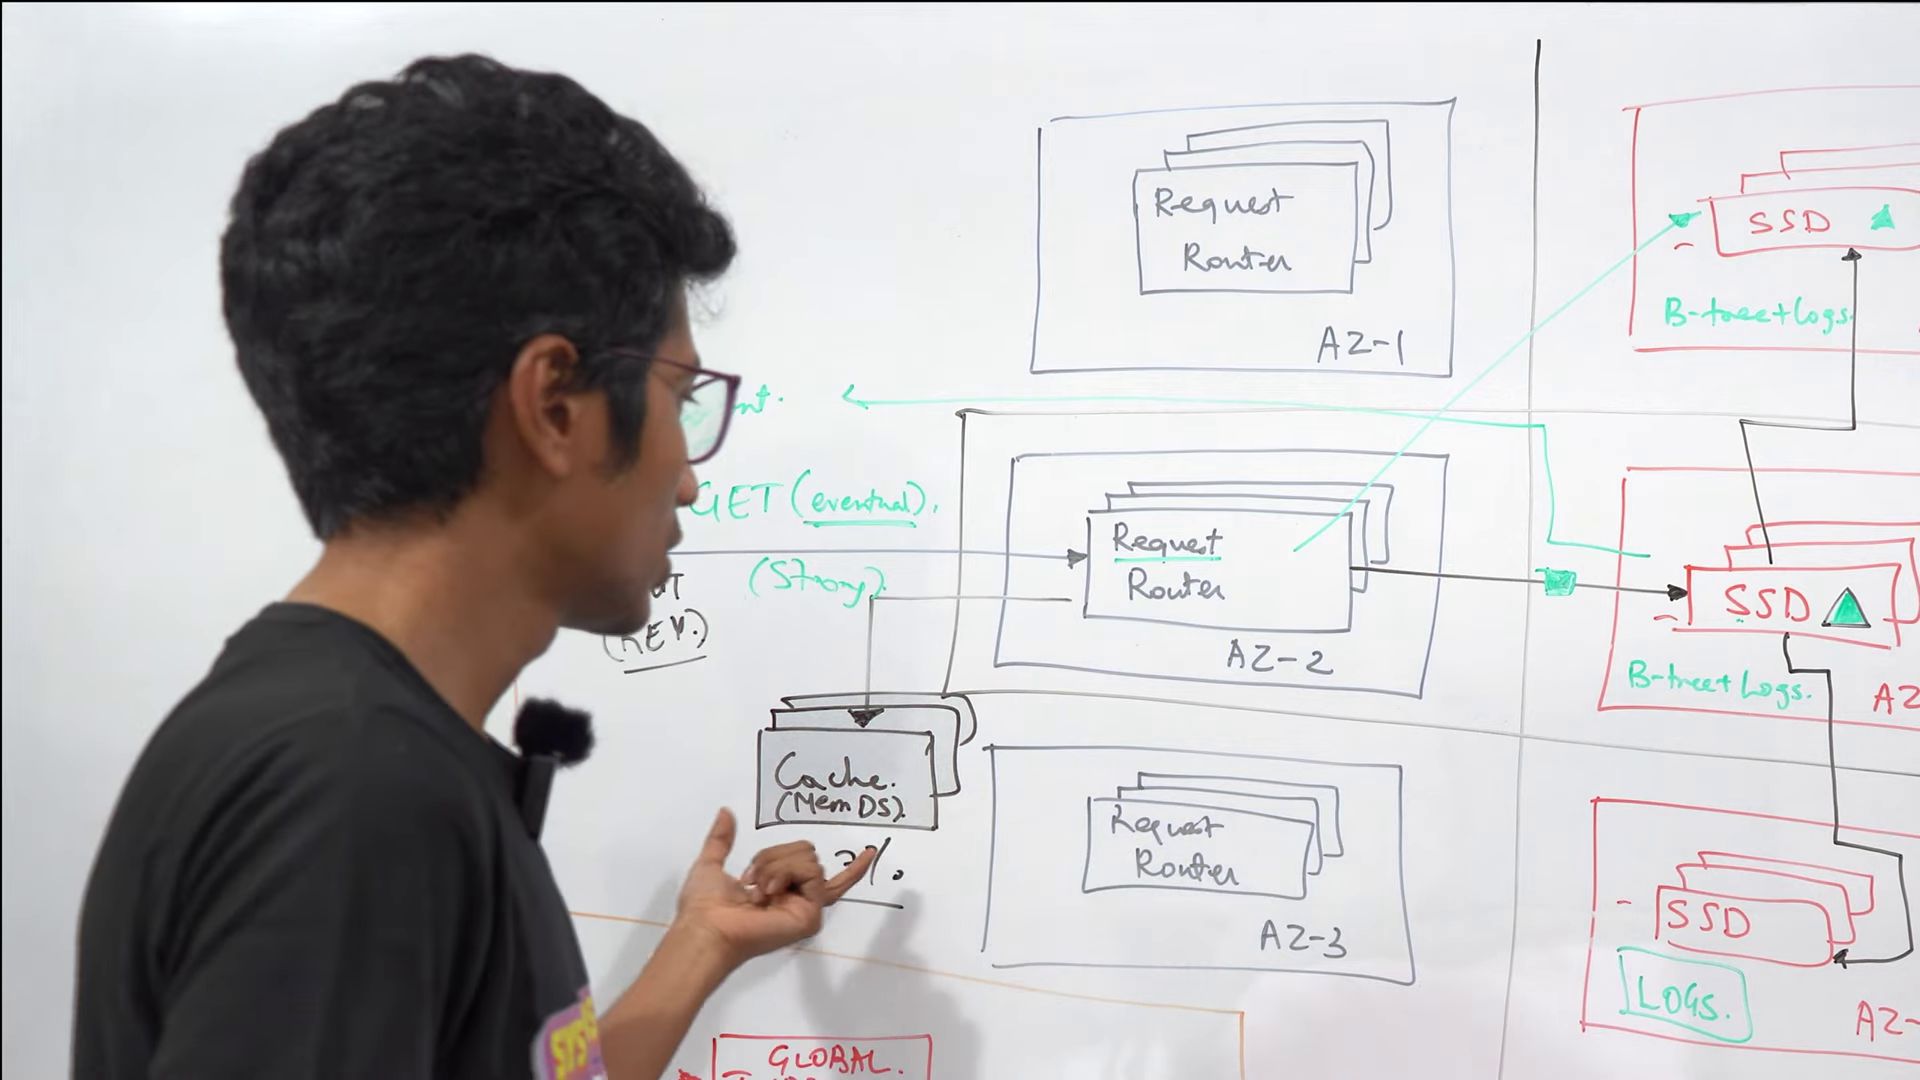 Request
Router
AZ-1
SSD
B-tree+Logs.
GET (eventual).
(Strong).
Request
Router
AZ-2
SSD
B-tree+Logs.
AZ
Cache.
(MemDS).
Request
Router
AZ-3
SSD
LOGS.
AZ-
GLOBAL.